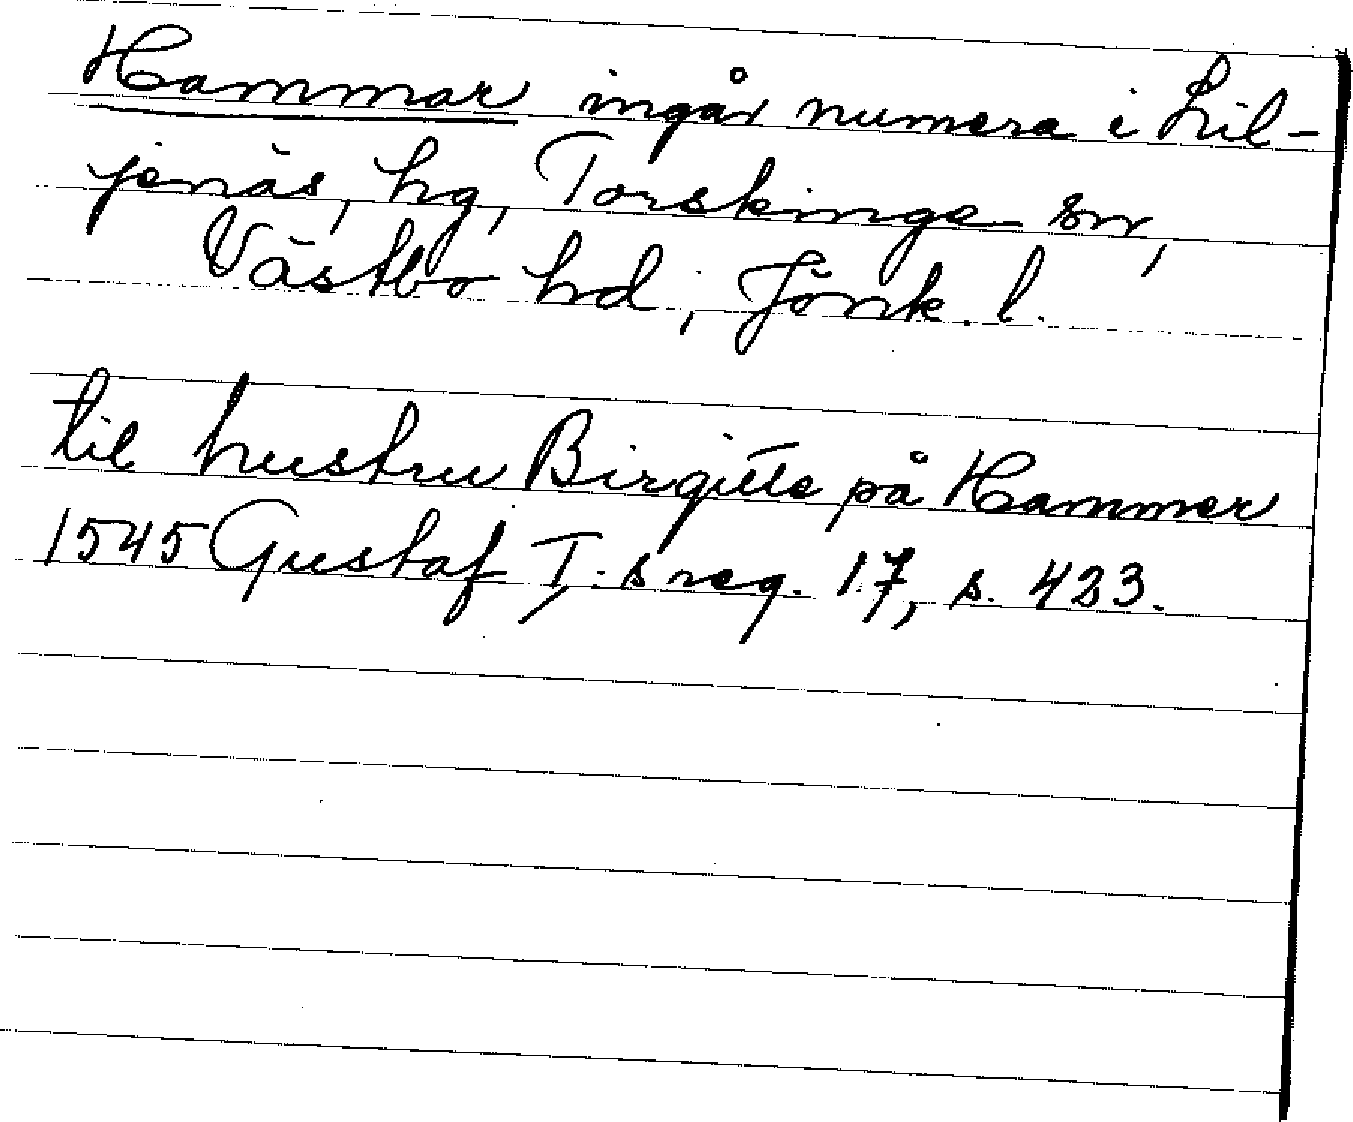 Hammar ingår numera i Lil-
jenäs, hg, Torskinge sn,
Västbo hd, Jönk. l.
til hustru Birgitte på Hammer
1545 Gustaf I:s reg. 17, s. 423.